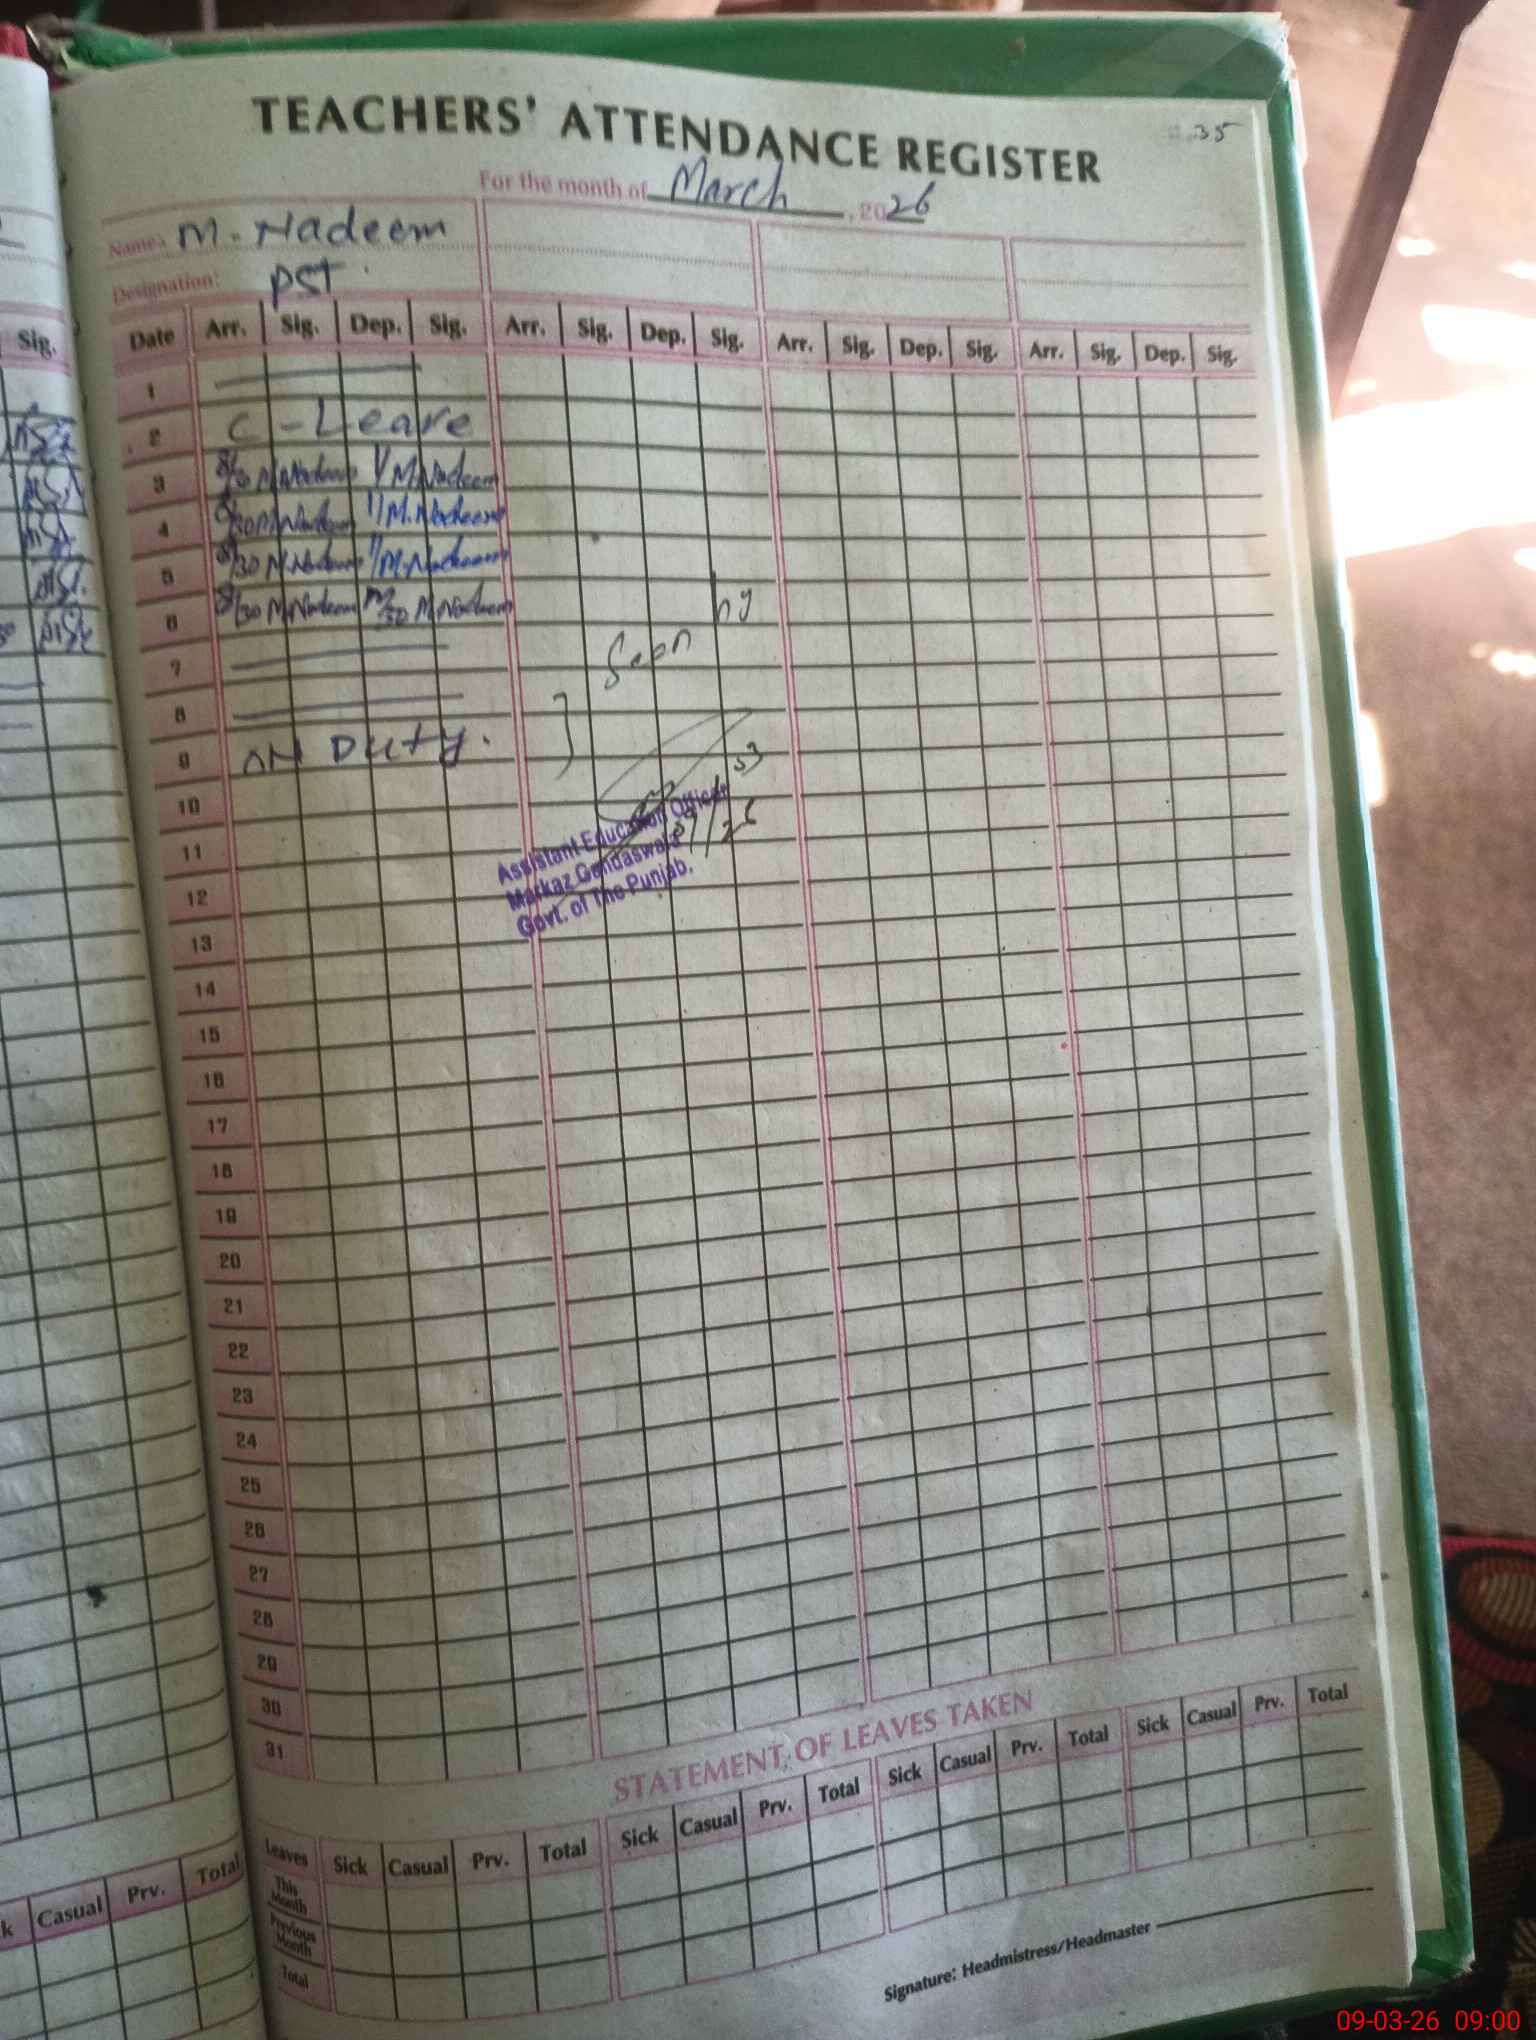 TEACHERS' ATTENDANCE REGISTER
35
For the month of March, 2026
Name: M. Nadeem
Designation: PST
Sig.
Date Arr. Sig. Dep. Sig. Arr. Sig. Dep. Sig. Arr. Sig. Dep. Sig. Arr. Sig. Dep. Sig.
1
2 C-Leave
3 8/30 M.Nadeem M.Nadeem
4 8/30 M.Nadeem // M.Nadeem
5 8/30 M.Nadeem // M.Nadeem
6 8/30 M.Nadeem 12/30 M.Nadeem
7
Seen by
8
9 ON DUTY.
10
Assistant Education Officer
11
Markaz Gendaswala
12
Govt. of The Punjab.
13
14
15
16
17
18
19
20
21
22
23
24
25
26
27
28
29
30
31
STATEMENT OF LEAVES TAKEN
Leaves Sick Casual Prv. Total Sick Casual Prv. Total Sick Casual Prv. Total Sick Casual Prv. Total
This Month
Previous Month
Total
Casual Prv. Total
Signature: Headmistress/Headmaster
09-03-26 09:00